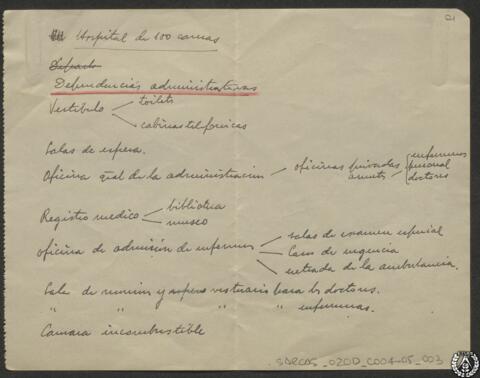 21
Hospital de 100 camas
Dependencias administrativas
Vestibulo
toilets
cabinas telefonicas
Salas de espera.
Oficina gral de la administracion
oficinas privadas
enfermeros
personal
doctores
Registro medico
biblioteca
museo
oficina de admisión de enfermos
salas de examen especial
Caso de urgencia
entrada de la ambulancia.
Sala de reunion y vestuario para los doctores.
" " " " enfermeras.
Camara incombustible
SARCOS_020D_C004-05_003